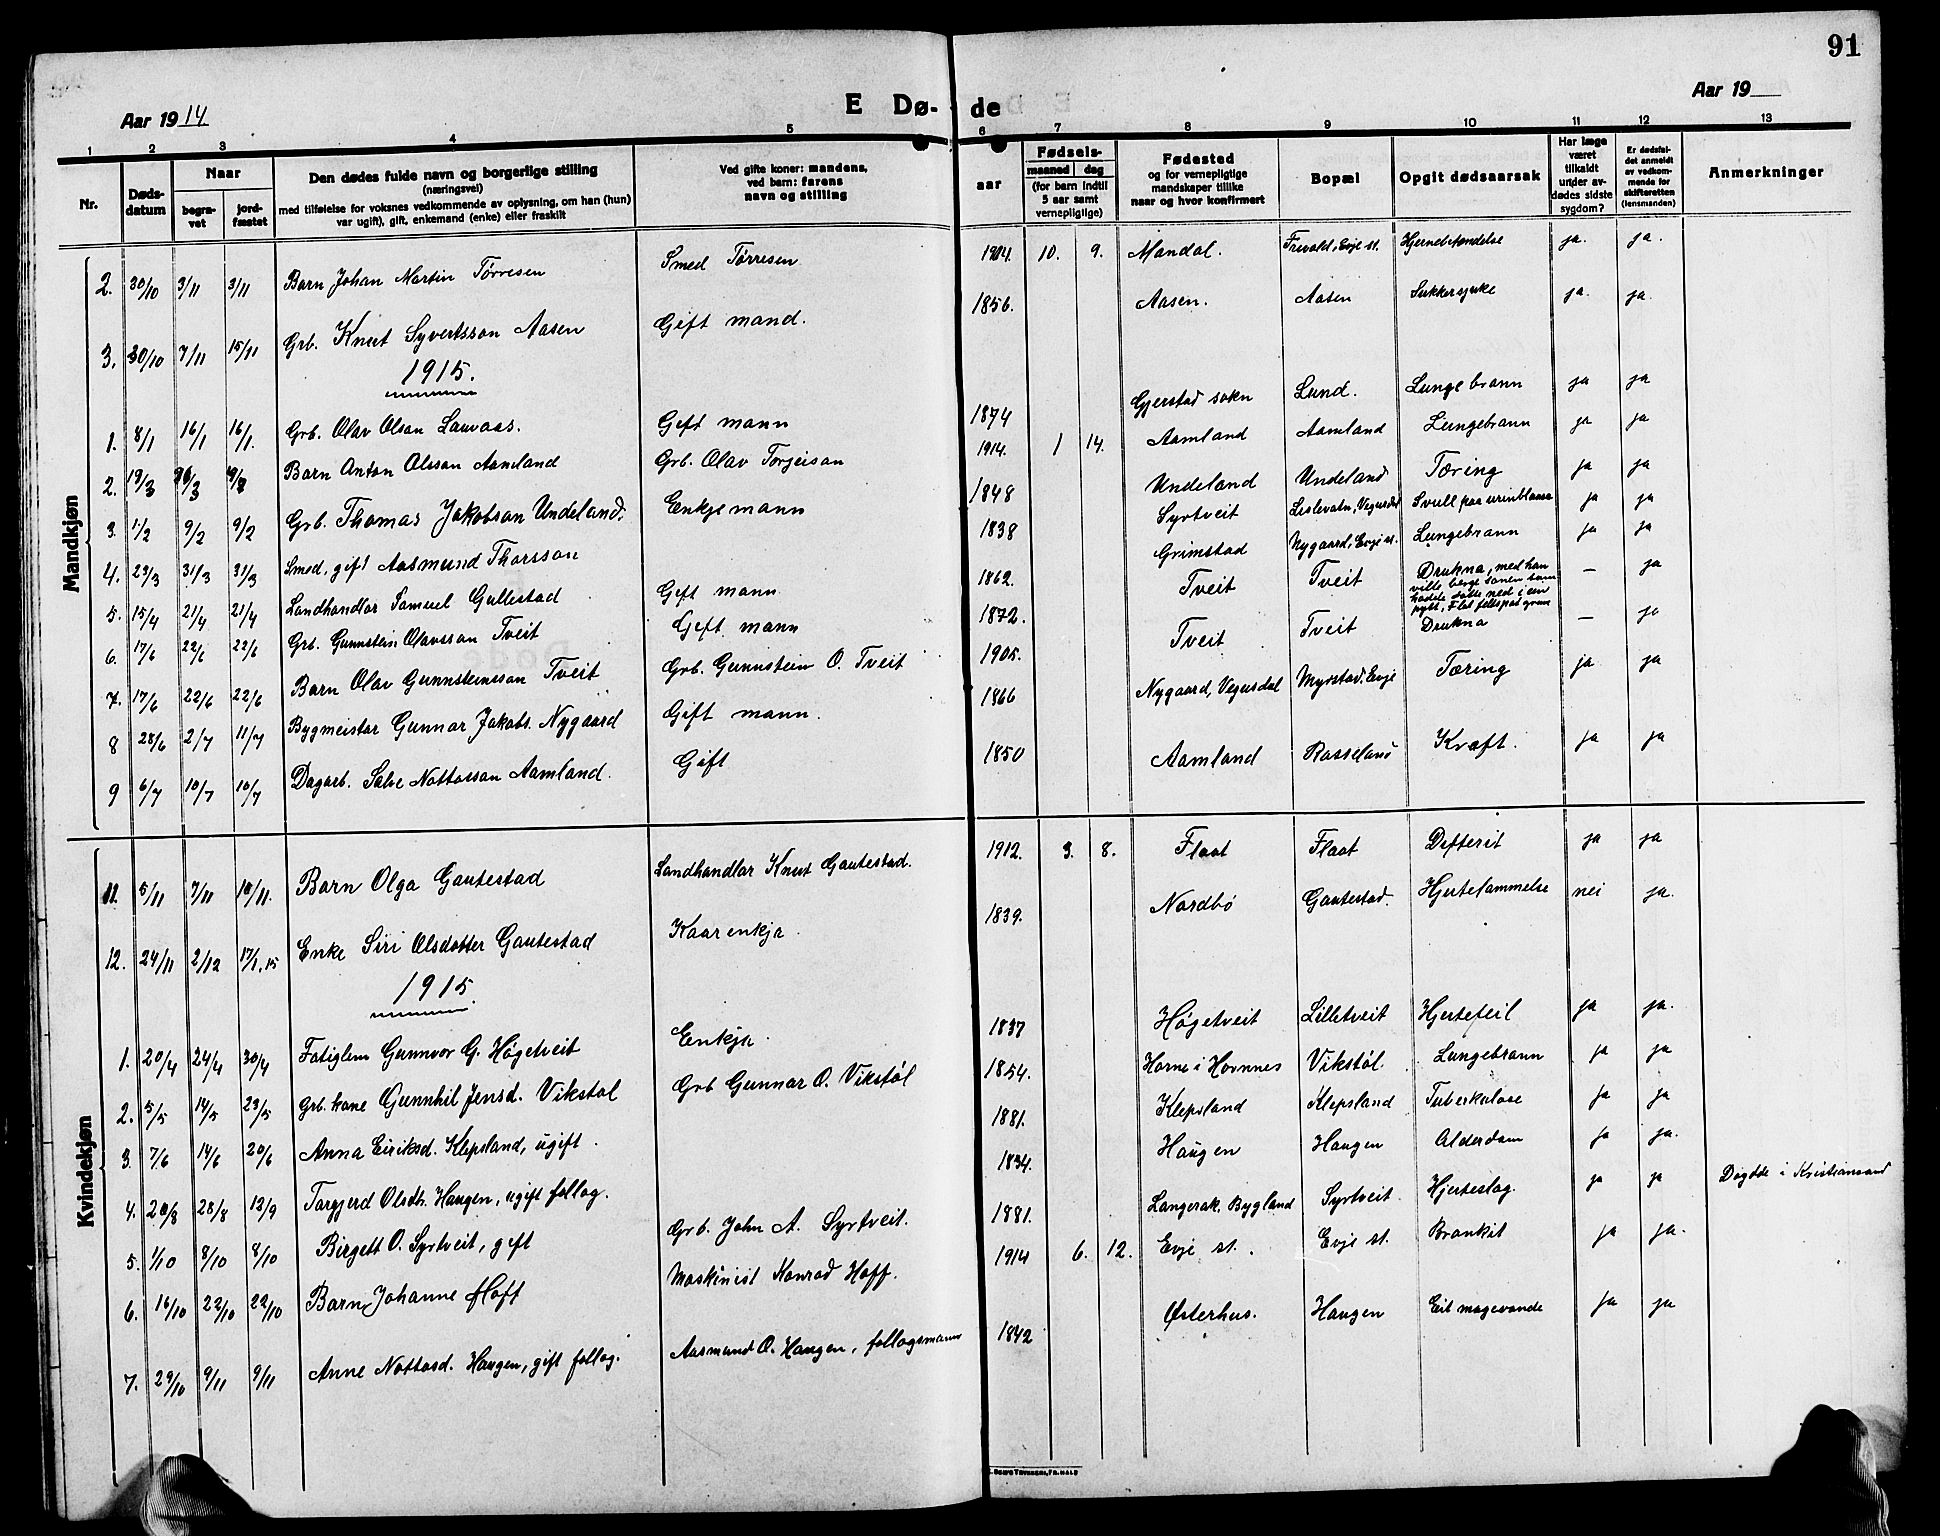 91
Aar 1914
E Dø-
de
Aar 19
1 2 3 4 5 6 7 8 9 10 11 12 13
Nr.
Døds-
datum
Naar
begra-
vet
jord-
fæstet
Den dødes fulde navn og borgerlige stilling
(næringsvei)
med tilføielse for voksnes vedkommende av oplysning, om han (hun)
var ugift), gift, enkemand (enke) eller fraskilt
Ved gifte koner: mandens,
ved barn: farens
navn og stilling
aar
Fødsels-
maaned dag
(for barn indtil
5 aar samt
vernepligtige)
Fødested
og for vernepligtige
mandskaper tillike
naar og hvor konfirmert
Bopæl
Opgit dødsaarsak
Har læge
været
tilkaldt
under av-
dødes sidste
sygdom?
Er dødsfal-
det anmeldt
av vedkom-
mende for
skifteretten
(lensmanden)
Anmerkninger
Mandkjøn
2. 30/10 3/11 3/11 Barn Johan Martin Tørresen Smed Tørresen 1914. 10. 9. Mandal. Frivold, Evje st. Hjernebetændelse ja. ja.
3. 30/10 7/11 15/11 Grb. Knut Syvertsson Aasen Gift mand. 1856. Aasen. Aasen Sukkersjuke ja. ja.
1915.
1. 8/1 16/1 16/1. Grb. Olav Olson Lauvaas. Gift mann 1874 Gjerstad sokn Lund. Lungebrann ja ja
2. 19/3 Barn Anton Olsson Aamland Grb. Olav Torjeison 1914. 1 14. Aamland Aamland Lungebrann ja ja
3. 1/2 9/2 9/2 Grb. Thomas Jakobson Undeland. Enkjemann 1848 Undeland Undeland Tæring ja ja
4. 23/3 31/3 31/3 Smed, gift Aasmund Thorsson 1838 Syrtveit Lislevatn, Vegusdal Svull paa urinblæra ja ja
5. 15/4 21/4 21/4 Landhandlar Samuel Gullestad Gift mann 1862. Grimstad Nygaard, Evje st. Lungebrann ja ja
6. 17/6 22/6 22/6 Grb. Gunnstein Olavsson Tveit Gift mann 1872. Tveit Tveit Drukna, med han
vilde berge sonen som
hadde dotte ned i ein
pytt, Flat feltspat gruve
— ja
7. 17/6 22/6 22/6 Barn Olav Gunnsteinsson Tveit Grb. Gunnstein O. Tveit 1905. Tveit Tveit Drukna — ja
8 28/6 2/7 11/7 Bygmeistar Gunnar Jakobs. Nygaard Gift mann. 1866 Nygaard, Vegusdal Myrstad, Evje Tæring ja ja
9 6/7 10/7 10/7 Dagarb. Salve Nottosson Aamland. Gift 1850 Aamland Rosseland Kræft. ja ja
Kvindekjøn
11. 5/11 7/11 10/11. Barn Olga Gautestad Landhandlar Knut Gautestad. 1912. 3. 8. Flaat Flaat Difterit ja ja
12. 24/11 2/12 17/1.15 Enke Siri Olsdotter Gautestad Kaarenkja. 1839. Nordbø Gautestad. Hjertelammelse nei ja.
1915.
1. 20/4 24/4 30/4 Fatiglem Gunnvor G. Høgetveit Enkja. 1837 Høgetveit Lilletveit Hjertefeil ja ja.
2. 5/5 14/5 23/5 Grb. kone Gunnhil Jensd. Vikstøl Grb Gunnar O. Vikstøl 1854. Horne i Hornnes Vikstøl. Lungebrann ja ja
3. 7/6 14/6 20/6 Anna Eiriksd. Klepsland, ugift. 1881. Klepsland Klepsland Tuberkulose ja ja
4. 20/8 28/8 12/9 Torgjerd Olsdtr. Haugen, ugift follog. 1834. Haugen Haugen Alderdom ja ja.
5. 1/10 8/10 8/10 Birgett O. Syrtveit, gift Grb. John A. Syrtveit. 1881. Langerak, Bygland Syrtveit. Hjerteslag. ja ja Døydde i Kristiansand
6. 16/10 22/10 22/10 Barn Johanne Hoff Maskinist Konrad Hoff. 1914 6. 12. Evje st.. Evje st. Bronkit ja ja.
7. 29/10 9/11 9/11 Anne Nottosd. Haugen, gift follog. Aasmund O. Haugen, follogsmann 1842 Østerhus. Haugen Eit magevonde ja ja